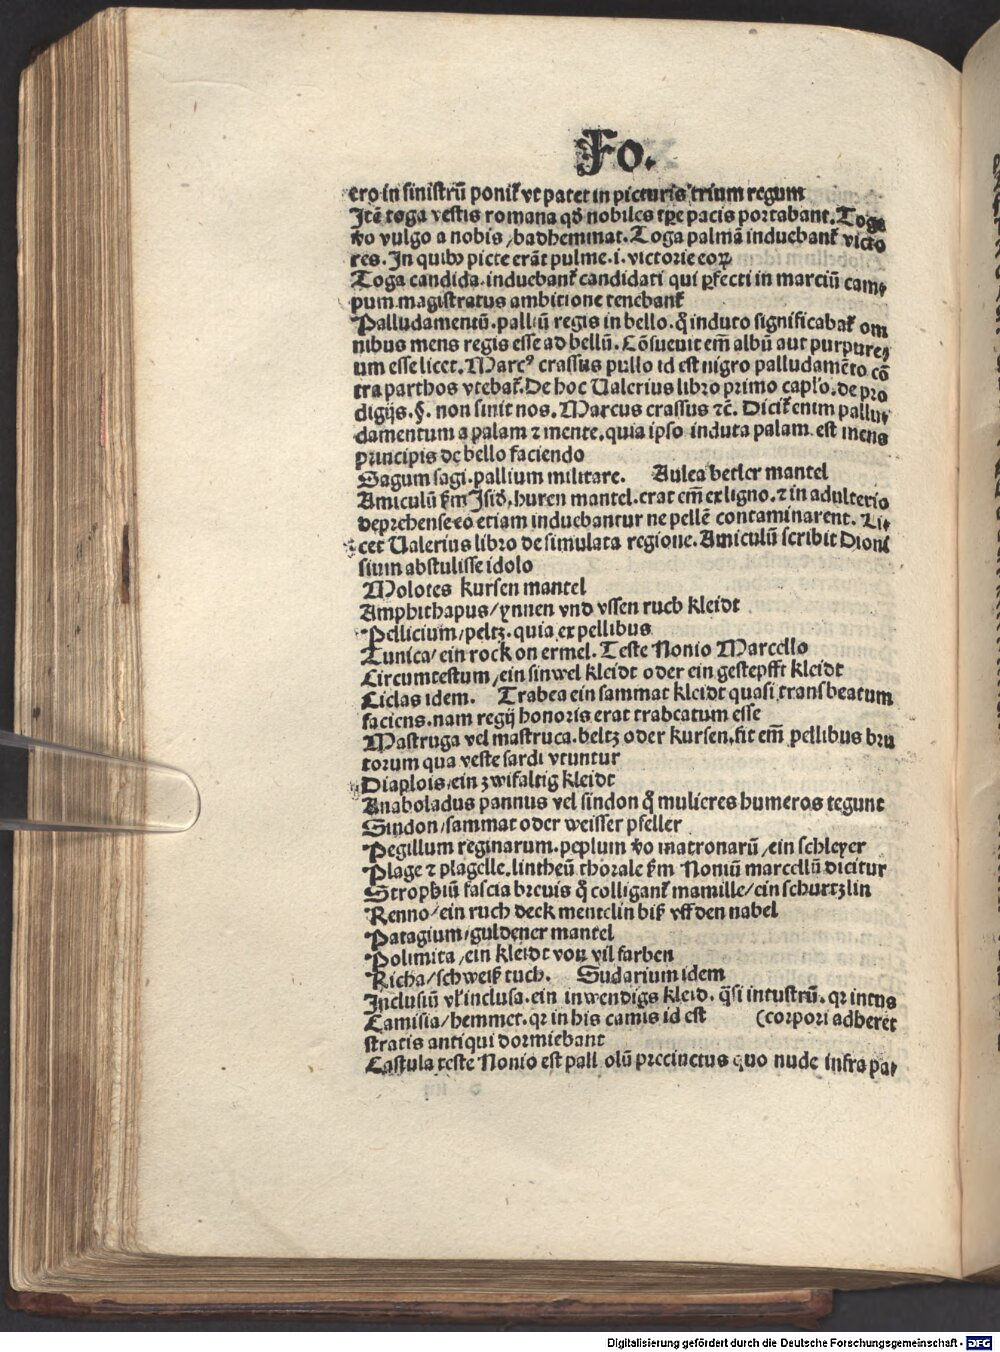 Fo.
ero in sinistrū ponit̄ vt patet in picturis trium regum
Itē toga vestis romana qd̓ nobiles tꝑe pacis portabant. Toga
v̓o vulgo a nobis / badhemmat. Toga palmā induebant̄ victo
res. In quibꝰ picte erāt pulme .i. victorie eoꝝ
Toga candida. induebant̄ candidati qui ꝑfecti in marciū cam⸗
pum magistratus ambitione tenebant̄
Palludamentū. palliū regis in bello. q̄ induto significabat̄ om
nibus mens regis esse ad bellū. Cōsueuit em̄ albū aut purpure⸗
um esse licet. Marcꝰ crassus pullo id est nigro palludamēto cō
tra parthos vtebat̄. De hoc Ualerius libro primo caplo. de pro
digijs. §. non sinit nos. Marcus crassus ⁊c̄. Dicit̄ enim pallu⸗
damentum a palam ⁊ mente. quia ipso induta palam est mens
principis de bello faciendo
Sagum sagi. pallium militare. Aulea betler mantel
Amiculū ẜm Isid. huren mantel. erat em̄ ex ligno. ⁊ in adulterio
deprehense eo etiam induebantur ne pellē contaminarent. Li⸗
cet Ualerius libro de simulata regione. Amiculū scribit Dioni
sium abstulisse idolo
Molotes kursen mantel
Amphithapus / ynnen vnd vssen ruch kleidt
Pellicium / peltz. quia ex pellibus
Tunica / ein rock on ermel. Teste Nonio Marcello
Circumtestum / ein sinwel kleidt oder ein gestepfft kleidt
Ciclas idem. Trabea ein sammat kleidt quasi transbeatum
faciens. nam regij honoris erat trabeatum esse
Mastruga vel mastruca. beltz oder kursen. fit em̄ pellibus bru
torum qua veste sardi vtuntur
Diaplois / ein zwifaltig kleidt
Anaboladus pannus vel sindon q̄ mulieres humeros tegunt
Sindon / sammat oder weisser pfeller
Pegillum reginarum. peplum v̓o matronarū / ein schleyer
Plage ⁊ plagelle. lintheū thorale ẜm Noniū marcellū dicitur
Strophiū fascia breuis q̄ colligant̄ mamille / ein schurtzlin
Renno / ein ruch deck mentelin biß vff den nabel
Patagium / guldener mantel
Polimita / ein kleidt von vil farben
Richa / schweiß tuch. Sudarium idem
Inclusiū vl̓ inclusa. ein inwendigs kleid. q̄si intustrū. qꝛ intus
Camisia / hemmet. qꝛ in his camis id est (corpori adheret
stratis antiqui dormiebant
Castula teste Nonio est pall olū precinctus quo nude infra pa⸗
Digitalisierung gefördert durch die Deutsche Forschungsgemeinschaft - DFG